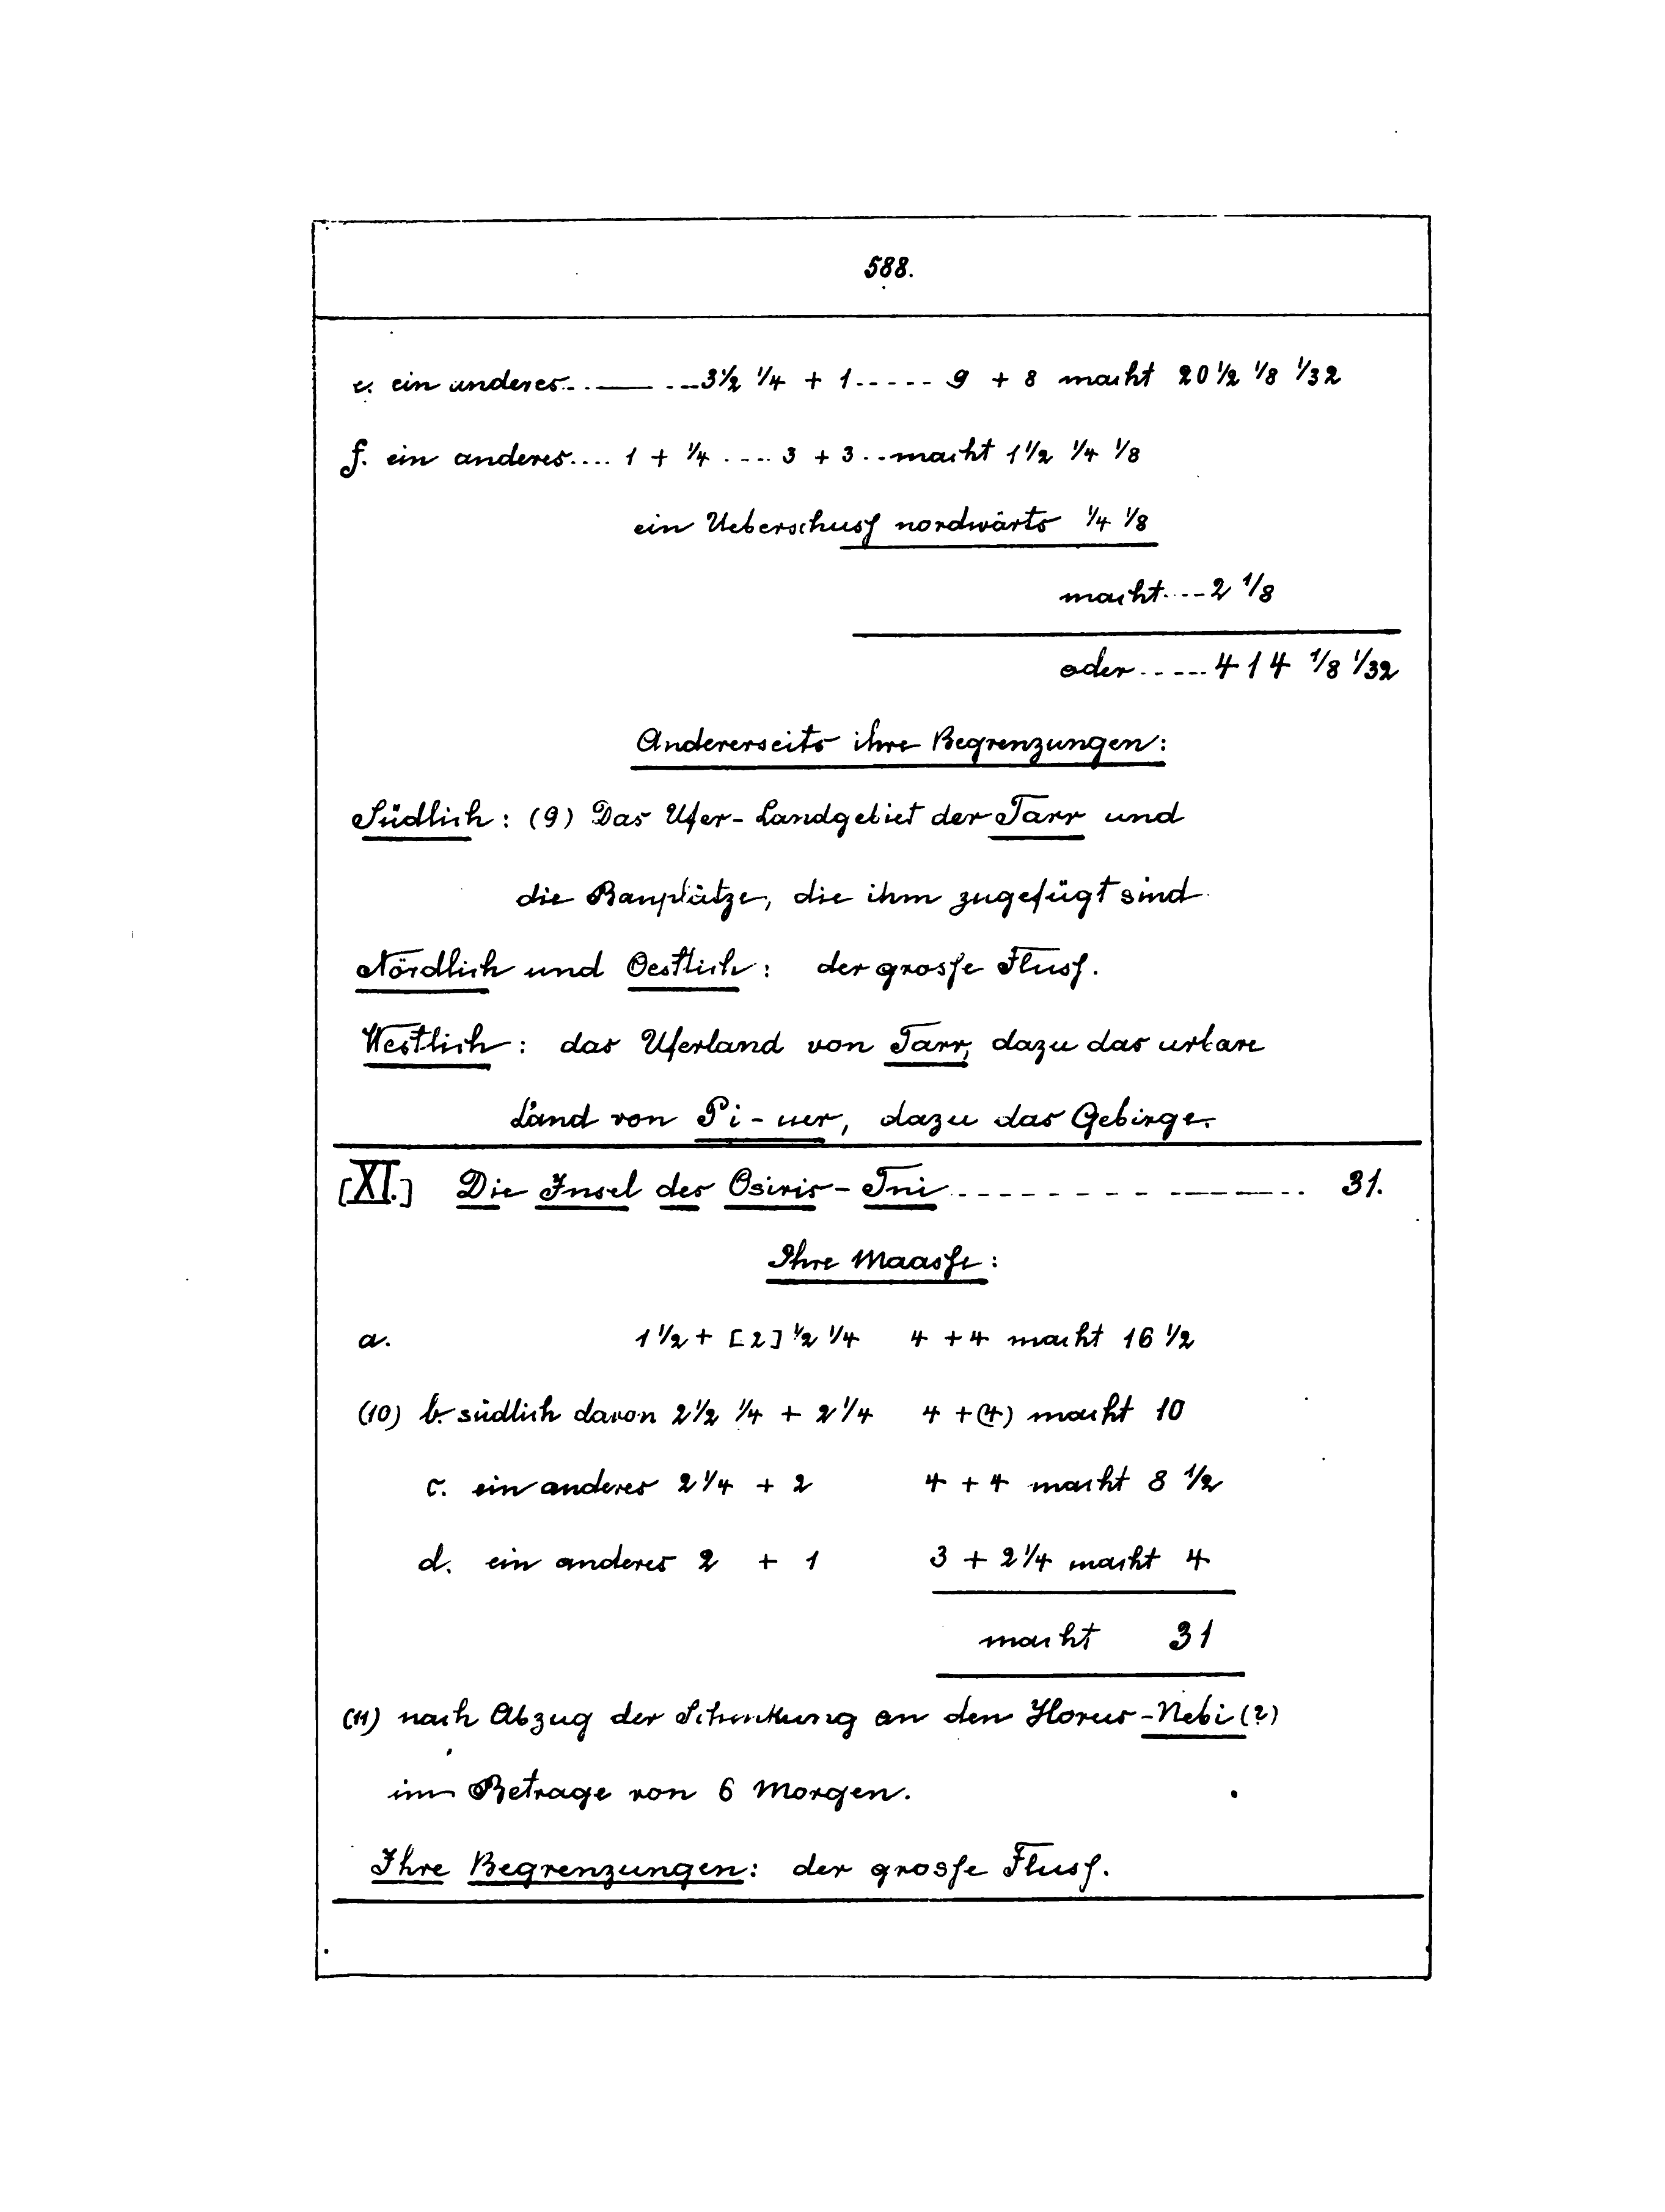 588.
e. ein anderes..—— ...3½ ¼ + 1..... 9 + 8 macht 20 ½ ⅛ 1/32
f. ein anderes.... 1 + ¼ .... 3 + 3 ..macht 1 ½ ¼ ⅛
ein Ueberschuſs nordwärts ¼ ⅛
macht....2 ⅛
oder.....414 ⅛ 1/32
Andererseits ihre Begrenzungen:
Südlich: (9) Das Ufer-Landgebiet der Tarr und
die Bauplätze, die ihm zugefügt sind
Nördlich und Oestlich: der grosse Fluss.
Westlich: das Uferland von Tarr, dazu das urbare
Land von Pi-uer, dazu das Gebirge.
[XI.] Die Insel des Osiris-Tni.................... 31.
Ihre Maasse:
a. 1 ½ + [2] ½ ¼ 4 + 4 macht 16 ½
(10) b. südlich davon 2 ½ ¼ + 2 ¼ 4 + (4) macht 10
c. ein anderes 2 ¼ + 2 4 + 4 macht 8 ½
d. ein anderes 2 + 1 3 + 2 ¼ macht 4
macht 31
(11) nach Abzug der Schenkung an den Horus-Nebi (?)
im Betrage von 6 Morgen.
Ihre Begrenzungen: der grosse Fluss.